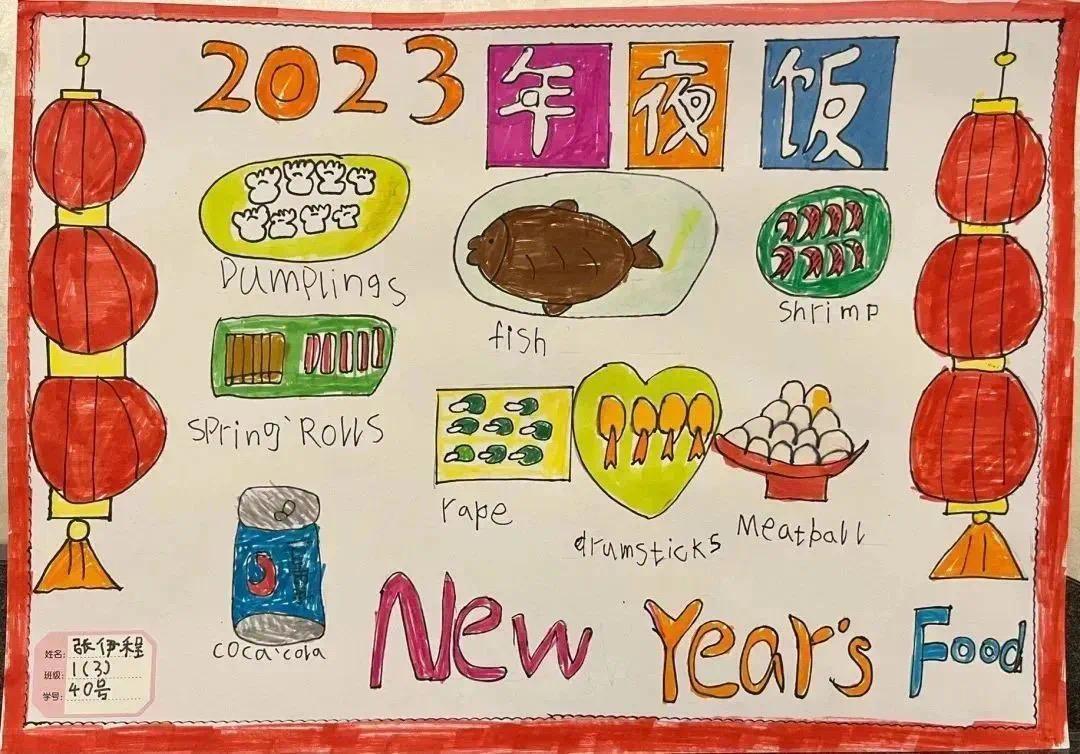 2023 年夜饭
Dumplings
fish
shrimp
spring'Rolls
rape
drumsticks
Meatball
coca'cola
New Year's Food
姓名: 张伊程
班级: 1(3)
学号: 40号